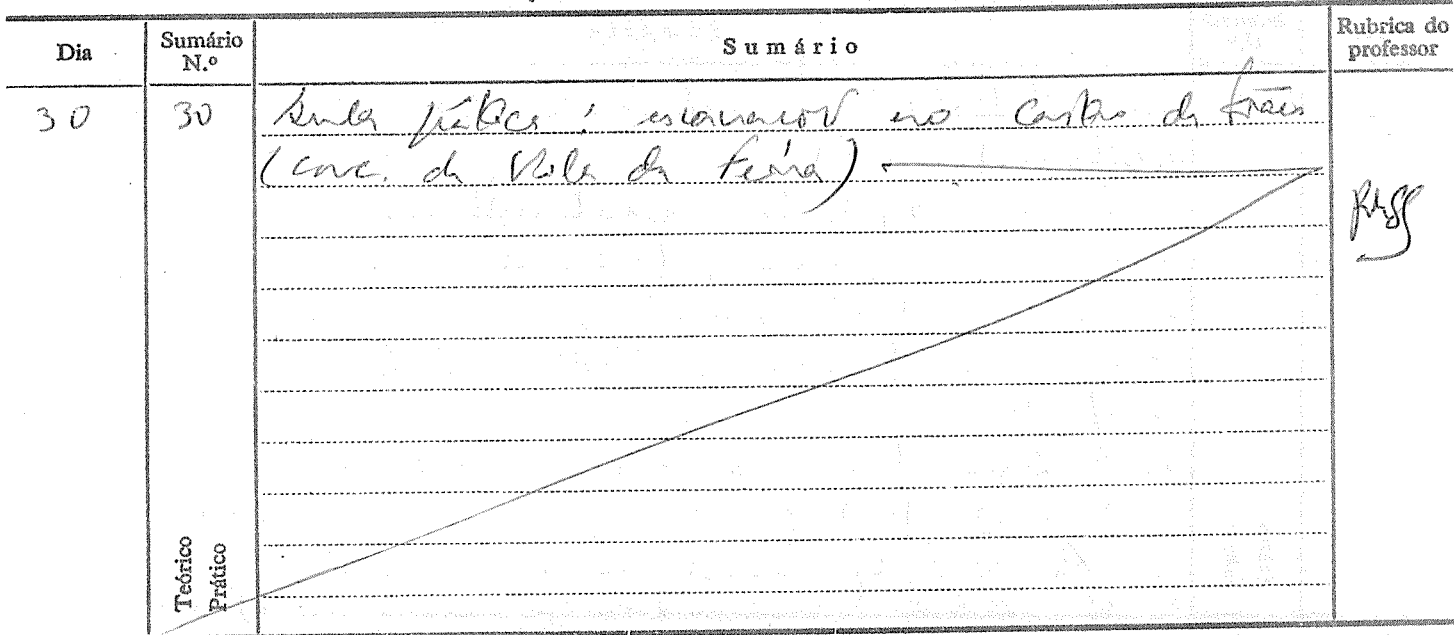 Dia
Sumário N.º
Sumário
Rubrica do professor
30
30
Aula prática: escavações no Castro de Fiães
(conc. da Vila da Feira).
Teórico
Prático